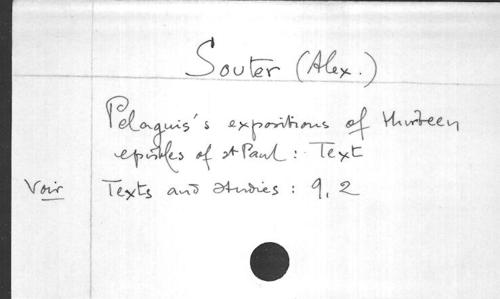 Souter (Alex.)
Pelagius's expositions of thirteen
epistles of st Paul : Text
Voir Texts and studies : 9, 2